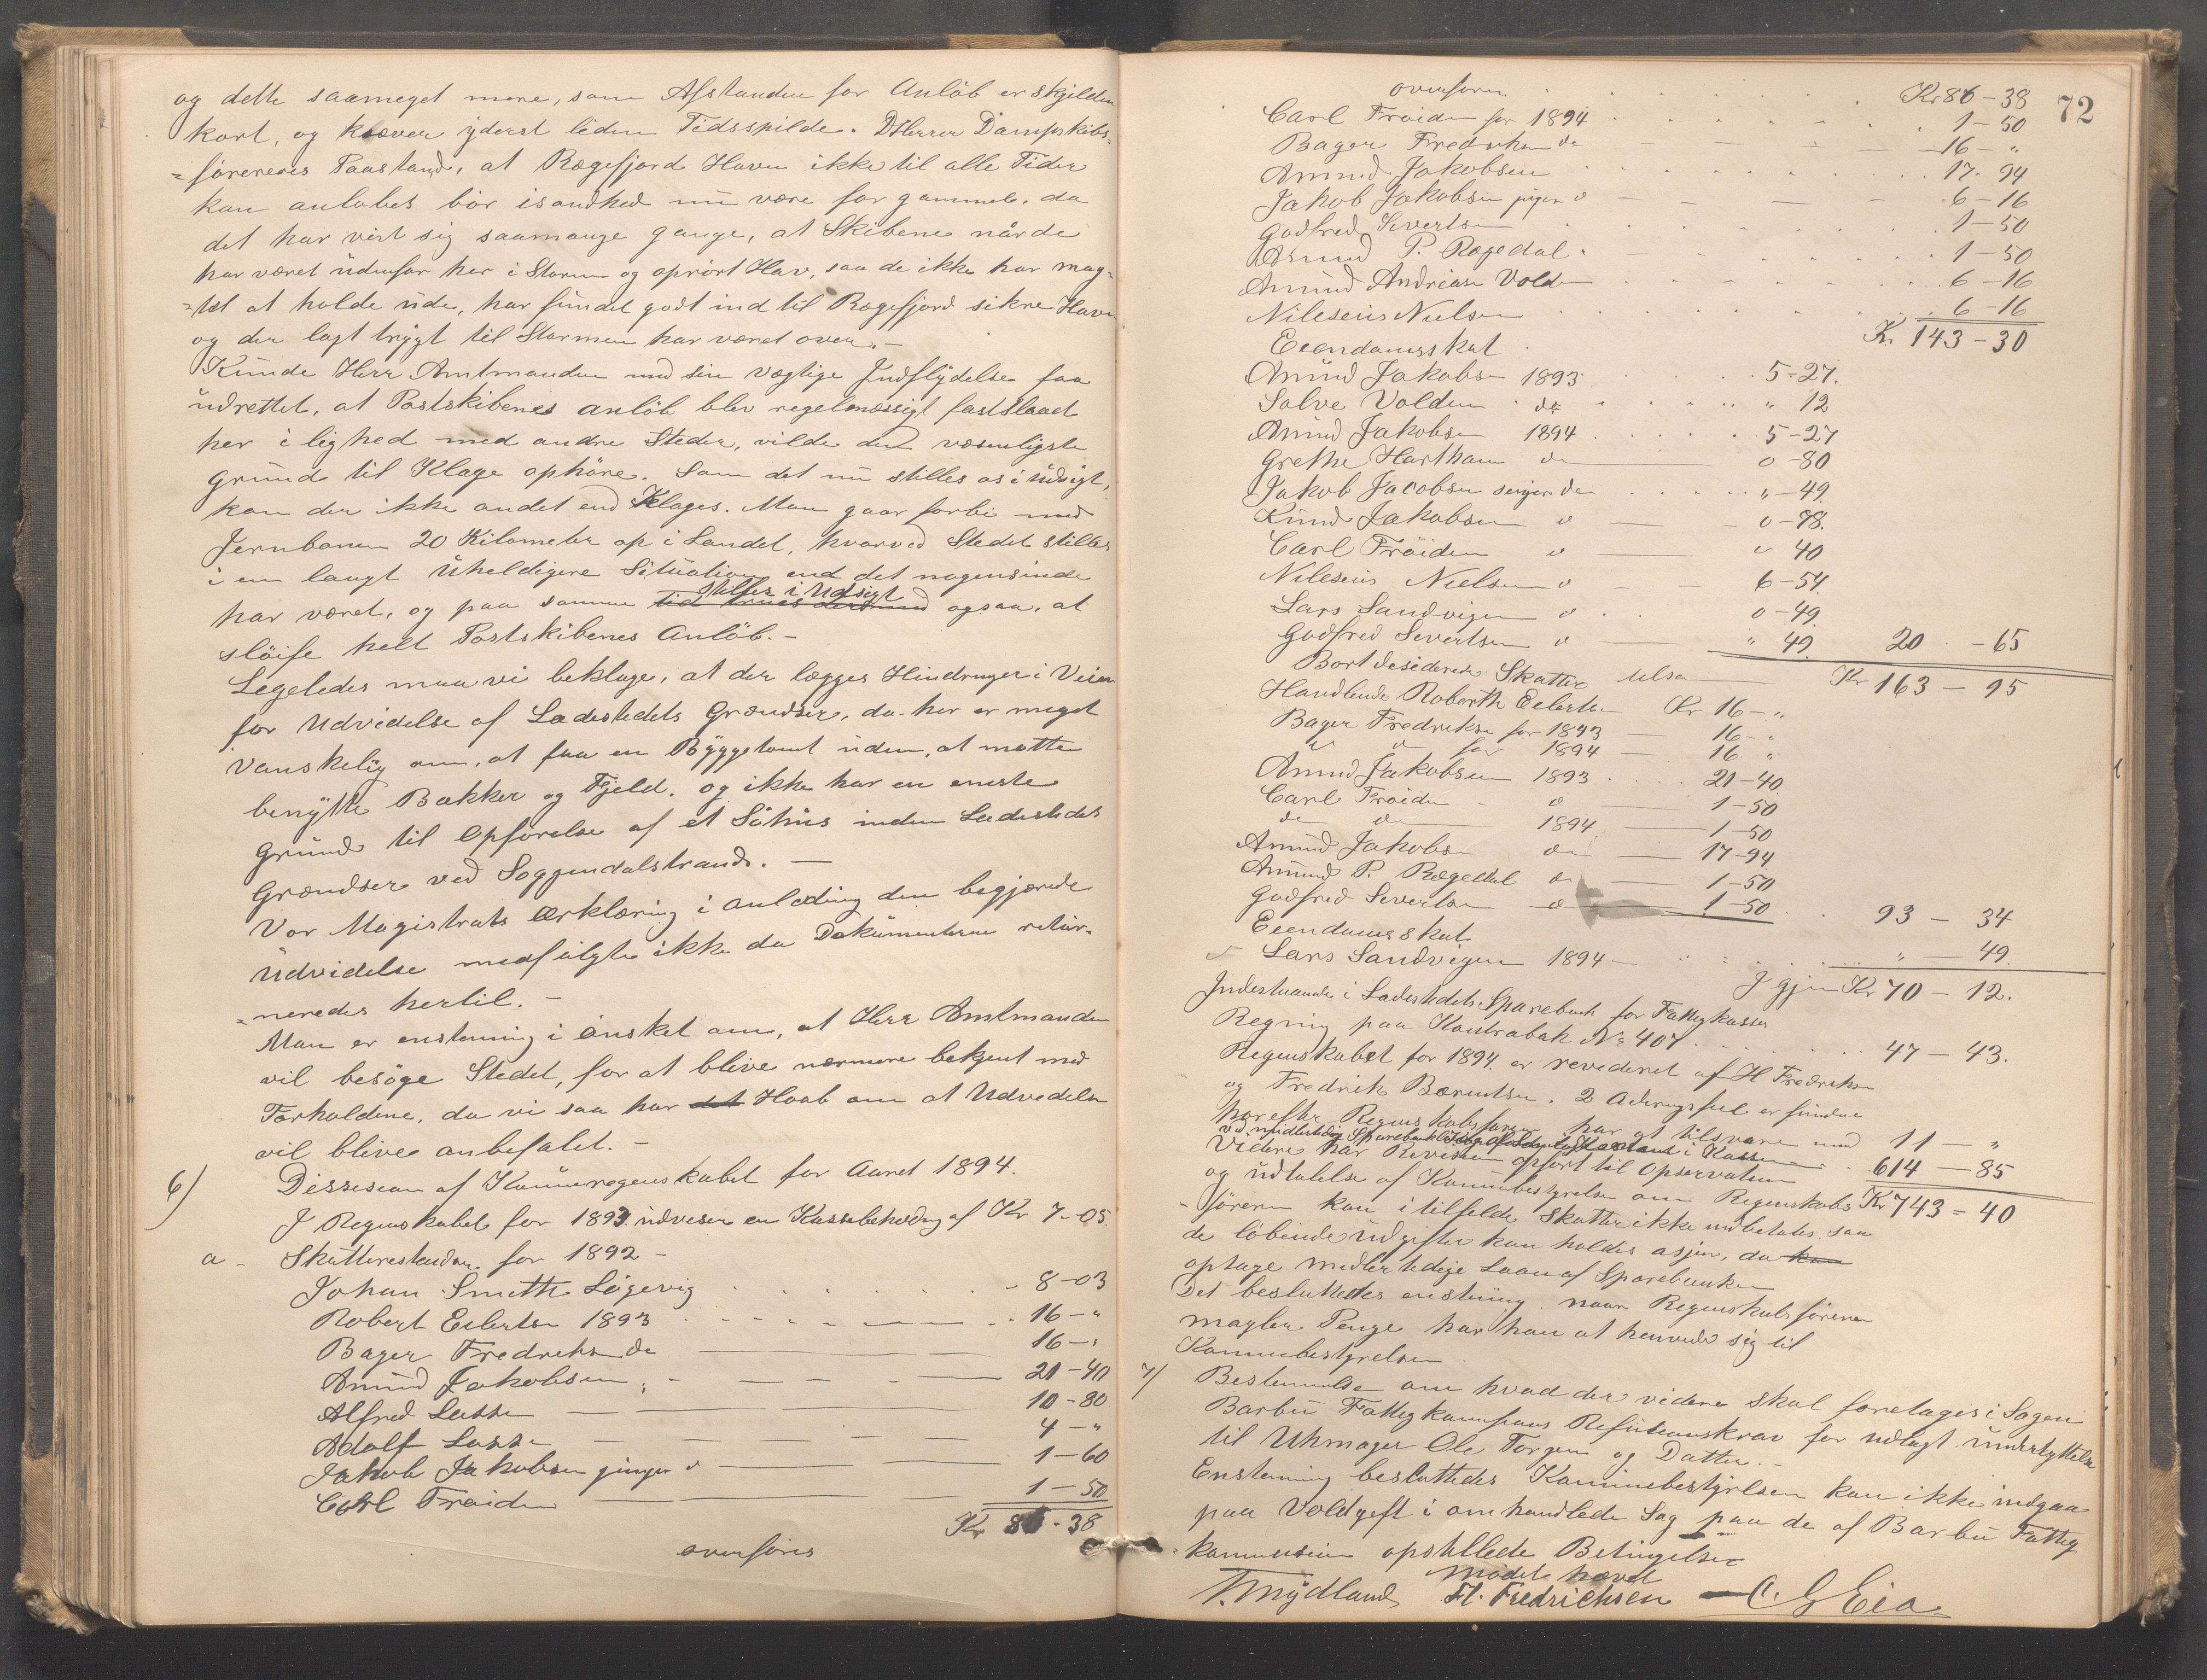 og dette saameget mere, som Afstanden for Anløb er skjelden
kort, og kræver yderst liden Tidsspilde. DHerrer Dampskibs-
=førereres Paastand, at Rægefjord Havn ikke til alle Tider
kan anløbes bør isandhed nu være for gammel, da
det har vist sig saamange gange, at Skibene når de
har været udenfor her i Storm og oprørt Hav, saa de ikke har mag-
=tet at holde ude, har fundet godt ind til Rægefjord sikre Havn
og der lagt trygt til Stormen har været over. –
Kunde Herr Amtmanden med sin vægtige Indflydelse faa
udrettet, at Postskibenes anløb blev regelmæssigt fastslaaet
her i lighed med andre Steder, vilde den væsenligste
grund til Klage ophøre. Som det nu stilles os i Udsigt,
kan der ikke andet end Klages. Man gaar forbi med
Jernbanen 20 Kilometer op i Landet, hvorved Stedet stilles
i en langt Uheldigere Situation end det nogensinde
har været, og paa samme tid stilles i Udsigt ogsaa, at
sløife helt Postskibenes Anløb. –
Legeledes maa vi beklage, at der lægges Hindringer i Veien
for Udvidelse af Ladestedets Grændser, da her er meget
Vanskelig om, at faa en Byggetomt uden, at maatte
benytte Bakker og Fjeld. og ikke har en eneste
Grund til Opførelse af et Søhus inden Ladestedets
Grændser ved Soggendalstrand. –
Vor Magistrats Erklæring i anleding den begjærede
Udvidelse medfulgte ikke da Dokumenterne retur-
=neredes hertil. –
Man er enstemmig i ønsket om, at Herr Amtmanden
vil besøge Stedet, for at blive nærmere bekjent med
Forholdene, da vi saa har det Haab om at Udvedelsen
vil blive anbefalet. –
6) Dessesion af Kommuneregenskabet for Aaret 1894.
I Regnskabet for 1893 udviser en Kassebeholdning af Kr 7-05.
a - Skatterestanser for 1892 –
Johan Smith Løgevig 8-03
Robert Eilertsen 1893 16-"
Bager Fredriksen do 16-"
Amund Jakobsen 21-40
Alfred Lassen 10-80
Adolf Lassen 4-"
Jakob Jakobsen yngre do 1-60
Carl Frøiden 1-50
Kr 86-38
overføres
72
overføren Kr 86-38
Carl Frøiden for 1894 1-50
Bager Fredriksen do 16-"
Amund Jakobsen 17-94
Jakob Jakobsen yngre do 6-16
Godfred Sivertsen 1-50
Amund P. Rægedal 1-50
Amund Andreas Volden 6-16
Nilesius Nielsen 6-16
Kr. 143-30
Eiendomsskat
Amund Jakobsen 1893 5-27.
Salve Volden do " 12
Amund Jakobsen 1894 5-27
Grethe Hartham do 0-80
Jakob Jacobsen senjor do "-49
Knud Jakobsen do 0-98.
Carl Frøiden do " 40
Nilesius Nielsen do 6-54.
Lars Sandvigen do 0-49.
Godfred Severtsen do " 49 20-65
Bort desiderede Skatter tilsa Kr 163-95
Handlende Roberth Eilertsen Kr 16-"
Bager Fredriksen for 1893 16-"
do do for 1894 16 "
Amund Jakobsen 1893 21-40.
Carl Frøiden do 1-50
do do 1894 1-50
Amund Jakobsen do 17-94
Amund P. Rægedal do 1-50
Godfred Severtsen do 1-50 93-34
Eiendomsskat
Lars Sandvigen 1894 " - 49.
Igjen Kr 70-12.
Indestaaende i Ladestedets Sparebank for Fattigkassen
Regning paa Kontrabok No 407 47-43.
Regenskabet for 1894. er revederet af H Fredriksen
og Fredrik Bærentsen. 2 Aderingsfeil er fundne
hvorefter Regnskabsføren har at tilsvare med 11-"
i Kassen 614-85
Videre har Revisionen opført til Opservation
og udtalelse af Kommunebestyrelsen om Regenskabs Kr 743-40
-føreren kan i tilfelde Skatter ikke indbetales saa
de løbende udgifter kan holdes asjur, da kan
optage midlertidige Laan af Sparebanken
Det besluttedes enstemig naar Regenskabsføreren
mangler Penge har han at henvende sig til
Kommunebestyrelsen
7/ Bestemmelse om hvad der videre skal foretages i Sagen
Barbu Fattigkommisions Refusionskrav for udlagt understyttelse
til Uhrmager Ole Torgersen og Datter. –
Enstemmig besluttedes Kommunebestyrelsen kan ikke indgaa
paa Voldgift i omhandlede Sag paa de af Barbu Fattig
kommission opstillede Betingelser
Mødet hævet
T. Mydland H. Fredrichsen C. G Eia